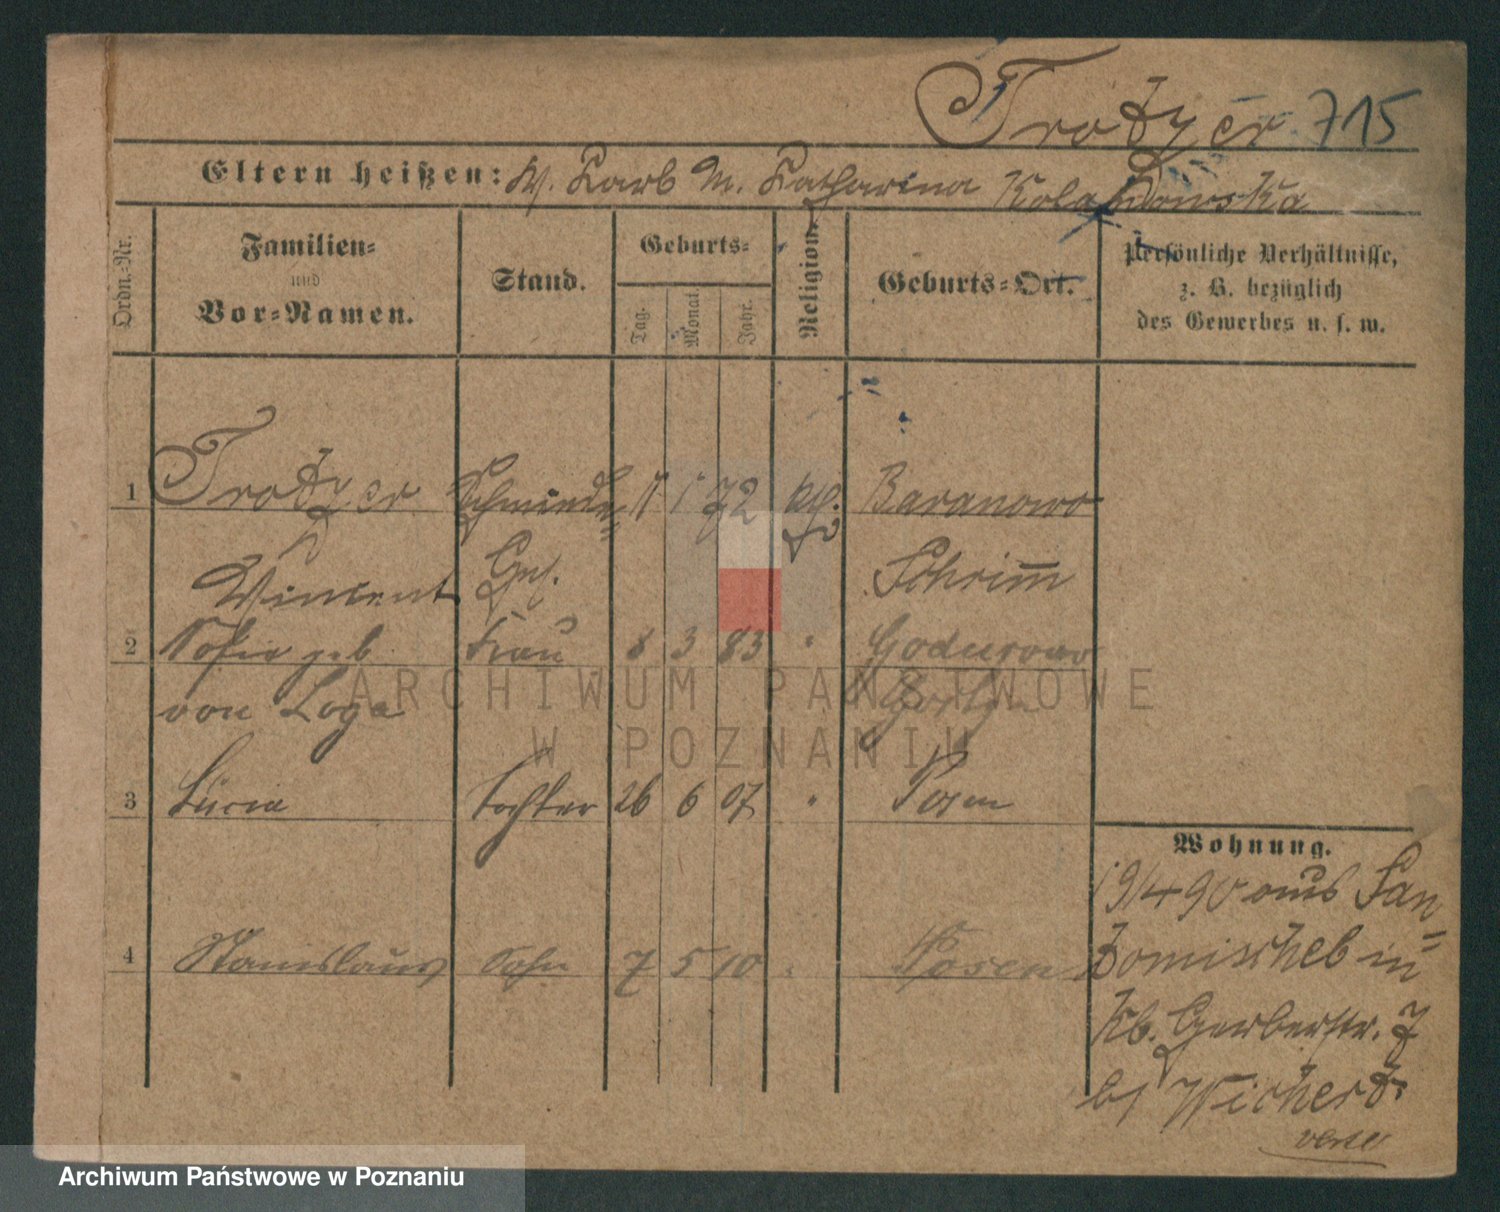 Trotzer 715
Eltern heißen: V. Karl M. Katharina Kolandowska
Ordn.-Nr.
Familien-
und
Vor-Namen.
Stand.
Geburts-
Tag.
Monat.
Jahr.
Religion.
Geburts-Ort.
Persönliche Verhältnisse,
z. B. bezüglich
des Gewerbes u. s. w.
1 Trotzer Schmiede- 11 1 72 kth. Baranowo
Vincent Ges. Schrimm
2 Sofia geb Frau 8 3 83 " Godurowo
von Loga Gostyn
3 Lucia Tochter 26 6 07 " Posen
4 Stanislaus Sohn 7 5 10 Posen
Wohnung.
19/4 90 aus San-
domischel in
Kl. Gerberstr. 7
b/ Wichert
verte
ARCHIWUM PAŃSTWOWE
W POZNANIU
Archiwum Państwowe w Poznaniu